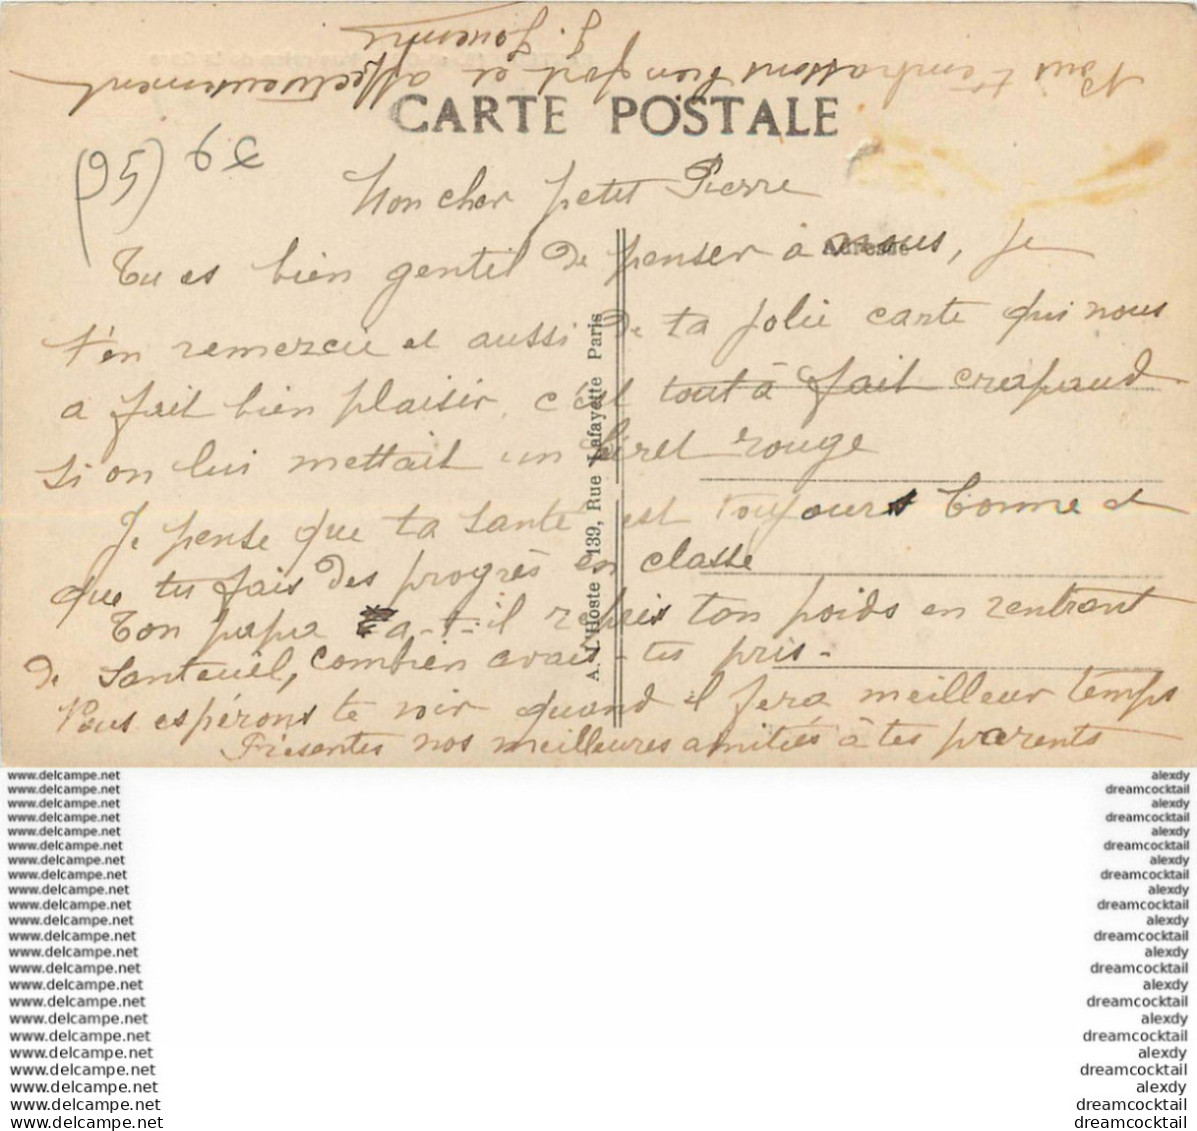 CARTE POSTALE
(95) 6€
Mon cher petit Pierre
Adresse
Tu es bien gentil de penser à nous, je
t'en remercie et aussi de ta jolie carte qui nous
a fait bien plaisir, c'est tout à fait crapaud
si on lui mettait un béret rouge
Je pense que ta santé est toujours bonne et
que tu fais des progrès en classe
Ton papa a-t-il repris ton poids en rentrant
de Santeuil, combien avais-tu pris-
Nous espérons te voir quand il fera meilleur temps
Présentes nos meilleures amitiés à tes parents
Nous t'embrassons bien fort et affectueusement
A. L'Hoste 139, Rue Lafayette Paris
www.delcampe.net alexdy
www.delcampe.net dreamcocktail
www.delcampe.net alexdy
www.delcampe.net dreamcocktail
www.delcampe.net alexdy
www.delcampe.net dreamcocktail
www.delcampe.net alexdy
www.delcampe.net dreamcocktail
www.delcampe.net alexdy
www.delcampe.net dreamcocktail
www.delcampe.net alexdy
www.delcampe.net dreamcocktail
www.delcampe.net alexdy
www.delcampe.net dreamcocktail
www.delcampe.net alexdy
www.delcampe.net dreamcocktail
www.delcampe.net alexdy
www.delcampe.net dreamcocktail
www.delcampe.net alexdy
www.delcampe.net dreamcocktail
www.delcampe.net alexdy
www.delcampe.net dreamcocktail
www.delcampe.net dreamcocktail